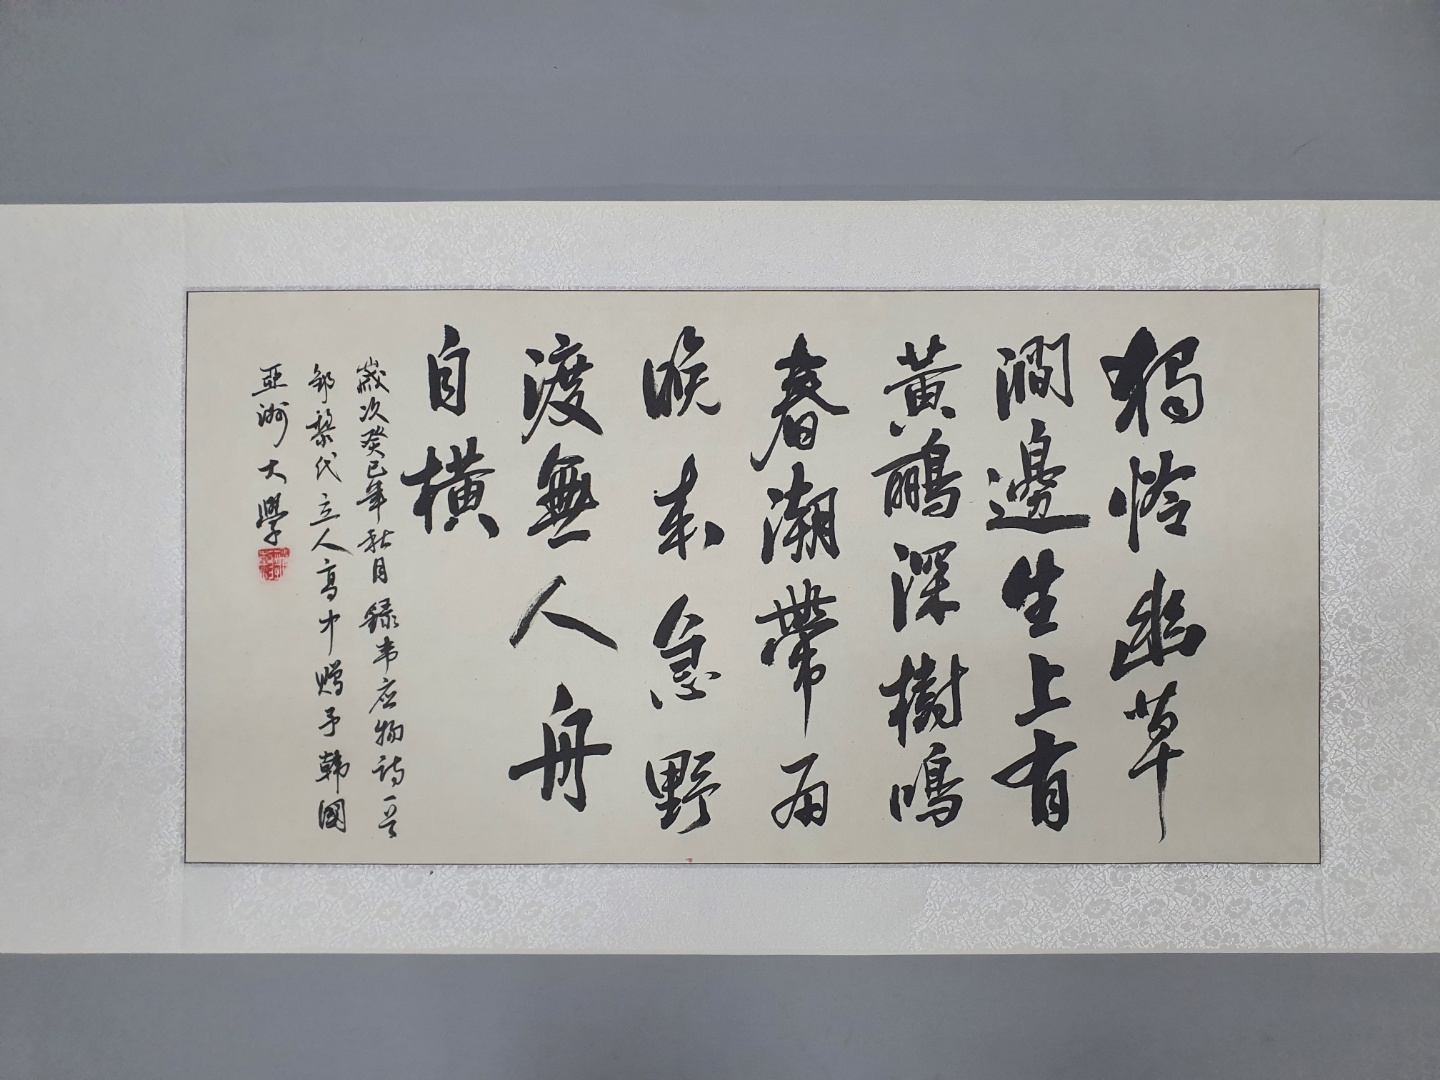 獨怜幽草
澗邊生上有
黃鸝深樹鳴
春潮帶雨
晚來急野
渡無人舟
自橫
歲次癸巳年秋月錄韦应物诗一首
邹黎代立人高中赠予韩國
亞洲大學